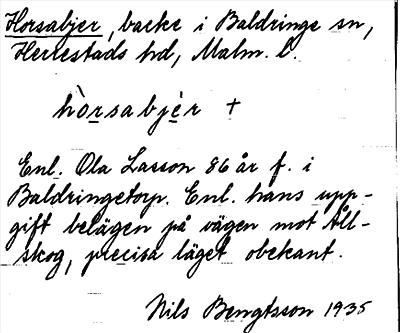 Horsabjer, backe i Baldringe sn,
Herrestads hd, Malm. l.
hòrsabjér +
Enl. Ola Lasson 86 år f. i
Baldringetorp. Enl. hans upp-
gift belägen på vägen mot Åll-
skog, precisa läget obekant.
Nils Bengtsson 1935